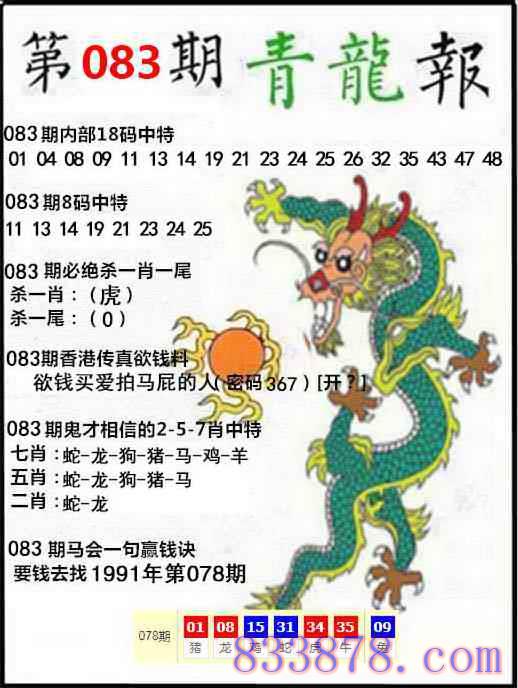 第083期青龍報
083期内部18码中特
01 04 08 09 11 13 14 19 21 23 24 25 26 32 35 43 47 48
083期8码中特
11 13 14 19 21 23 24 25
083 期必绝杀一肖一尾
杀一肖：（虎）
杀一尾：（0）
083期香港传真欲钱料
欲钱买爱拍马屁的人(密码367)[开？]
083期鬼才相信的2-5-7肖中特
七肖：蛇-龙-狗-猪-马-鸡-羊
五肖：蛇-龙-狗-猪-马
二肖：蛇-龙
083 期马会一句赢钱诀
要钱去找1991年第078期
078期 01 08 15 31 34 35 09
猪 龙 鸡 蛇 虎 牛 兔
833878.com